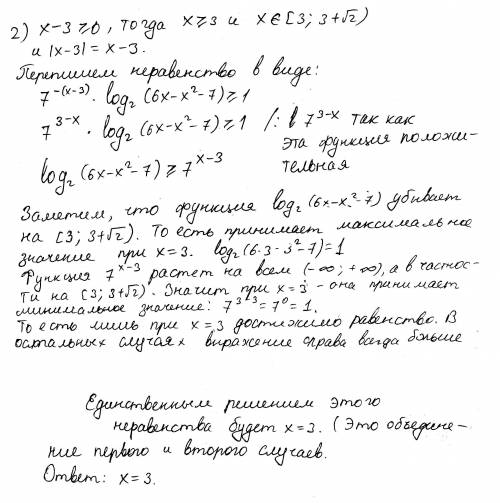 2) x-3≥0, тогда x≥3 и x∈[3; 3+√2)
и |x-3| = x-3.
Перепишем неравенство в виде:
7^{-(x-3)} · log₂ (6x-x²-7) ≥ 1
7^{3-x} · log₂ (6x-x²-7) ≥ 1 /: 7^{3-x} так как
эта функция положи-
тельная
log₂ (6x-x²-7) ≥ 7^{x-3}
Заметим, что функция log₂ (6x-x²-7) убывает
на [3; 3+√2). То есть принимает максимальное
значение при x=3. log₂(6·3-3²-7)=1
Функция 7^{x-3} растет на всем (-∞; +∞), а в частнос-
ти на [3; 3+√2). Значит при x=3 - она принимает
минимальное значение: 7^{3-3}=7⁰=1.
То есть лишь при x=3 достижимо равенство. В
остальных случаях выражение справа всегда больше
Единственным решением этого
неравенства будет x=3. (Это объедине-
ние первого и второго случаев.
Ответ: x=3.